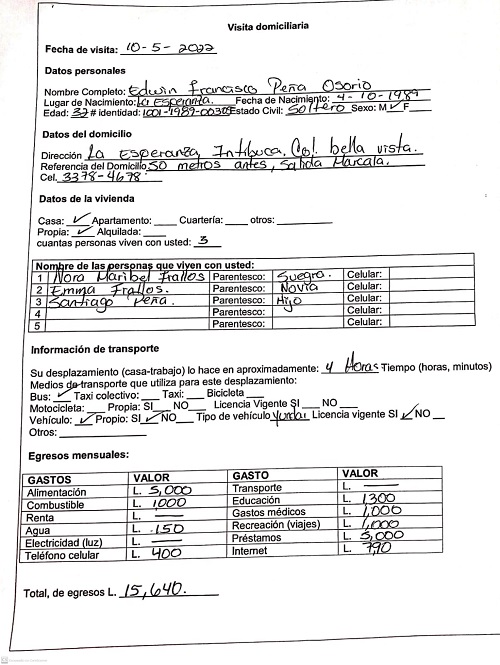 Visita domiciliaria
Fecha de visita: 10-5-2022
Datos personales
Nombre Completo: Edwin Francisco Peña Osorio
Lugar de Nacimiento: La Esperanza. Fecha de Nacimiento: 4-10-1989
Edad: 32 # identidad: 1001-1989-00305 Estado Civil: Soltero Sexo: M ✓ F
Datos del domicilio
Dirección La Esperanza, Intibuca, Col. bella vista.
Referencia del Domicilio 50 metros antes, Salida Marcala.
Cel. 3378-4678.
Datos de la vivienda
Casa: ✓ Apartamento: ____ Cuartería: ____ otros: ____
Propia: ✓ Alquilada: ____
cuantas personas viven con usted: 3
Nombre de las personas que viven con usted:
1 Nora Maribel Frallos Parentesco: Suegra. Celular:
2 Emma Frallos. Parentesco: Novia Celular:
3 Santiago Peña. Parentesco: Hijo Celular:
4 Parentesco: Celular:
5 Parentesco: Celular:
Información de transporte
Su desplazamiento (casa-trabajo) lo hace en aproximadamente: 4 Horas Tiempo (horas, minutos)
Medios de transporte que utiliza para este desplazamiento:
Bus: ✓ Taxi colectivo: ____ Taxi: ____ Bicicleta ____
Motocicleta: ____ Propia: SI ____ NO ____ Licencia Vigente SI ____ NO ____
Vehículo: ✓ Propio: SI ✓ NO ____ Tipo de vehículo Licencia vigente SI ✓ NO __
Otros: ____
Egresos mensuales:
GASTOS VALOR GASTO VALOR
Alimentación L. 5,000 Transporte L. —
Combustible L. 1000 Educación L. 1,300
Renta L. — Gastos médicos L. 1,000
Agua L. 150 Recreación (viajes) L. 1,000
Electricidad (luz) L. — Préstamos L. 5,000
Teléfono celular L. 400 Internet L. 790
Total, de egresos L. 15,640.